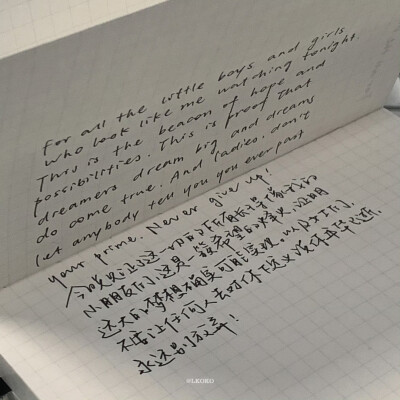 For all the little boys and girls
who look like me watching tonight.
This is the beacon of hope and
possibilities. This is proof that
dreamers dream big and dreams
do come true. And ladies, don't
let anybody tell you you ever past
your prime. Never give up!
今晚见证这一切的所有长得像我的
小朋友们,这是一簇希望的火,证明
远大的梦想确实可能实现。女士们,
不要让任何人去对你下定义说你年华已逝.
永远别放弃!
@LKORO